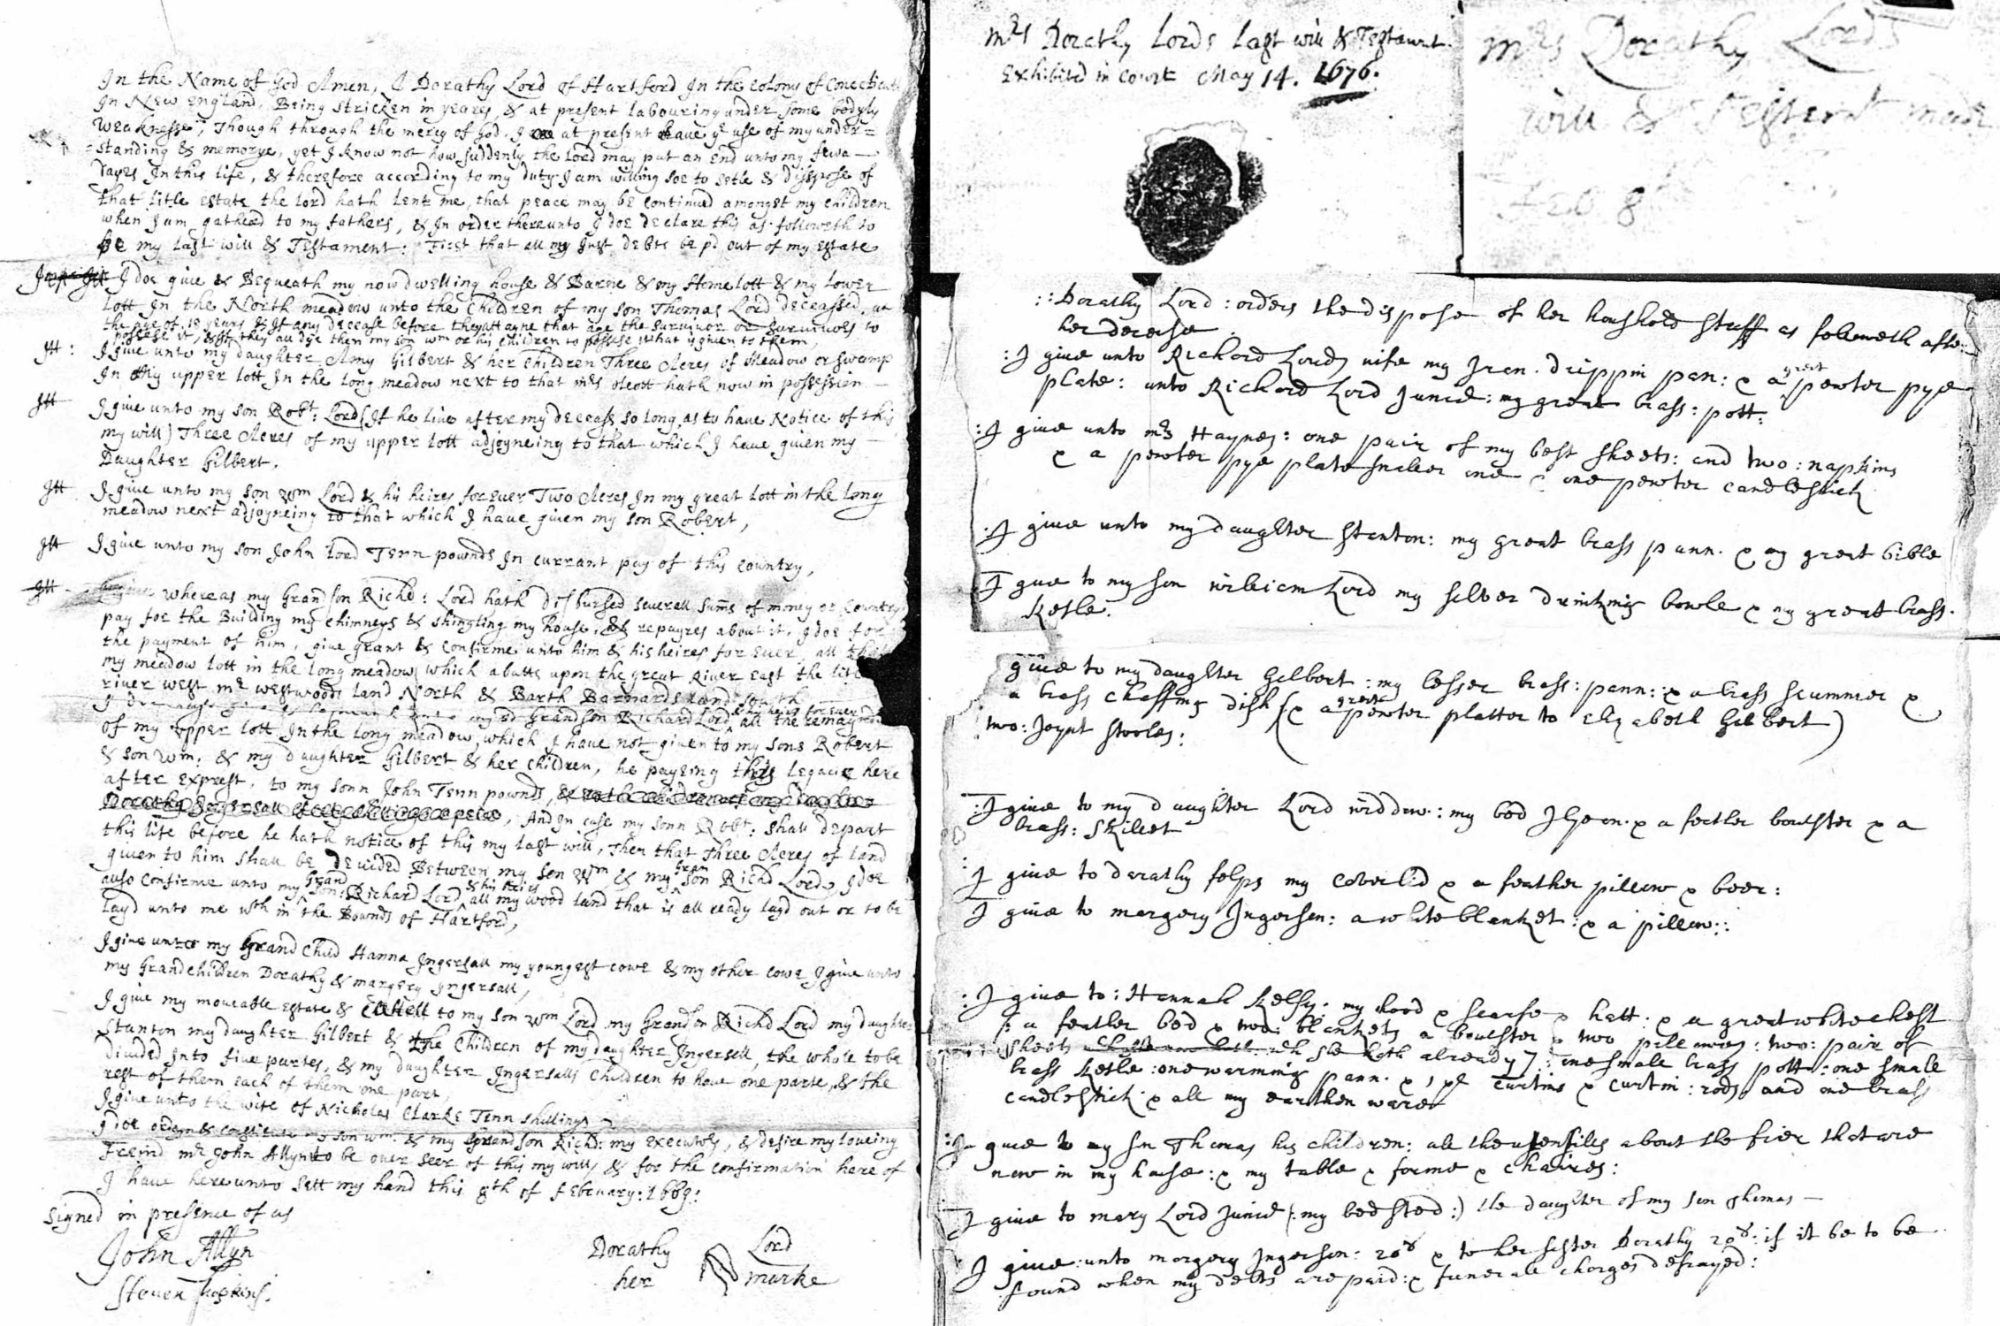 In the Name of God Amen, I Dorathy Lord of Hartford In the Colony of Conecticutt
In New England, Being stricken in yeares, & at present labouring under some bodyly
weaknesse, Though through the mercy of God I at present have ye use of my under=
=standing & memorye, yet I know not how suddenly the Lord may put an End unto my fewa
Dayes In this life, & therefore according to my duty I am willing soe to setle & disspose of
that litle Estate the lord hath lent me, that peace may be continued amongst my children
when I am gathered to my fathers, & In order thereunto I doe Declare this as followeth to
be my last will & Testament: First that all my Just Debts be pd out of my Estate
I doe give & Bequeath my now dwelling house & Barne & my Home lott & my lower
lott In the North meadow unto the Children of my son Thomas Lord Deceassed, at
the age of 18 years & If any Decease before they attayne that age the survivor or survivors to
possese it, & if they all dye then my son wm or his children to possese what is given to them
Itt: I give unto my daughter Amy Gilbert & her Children Three Acres of Meadow or swamp
In my upper lott In the long meadow next to that mrs Olcott hath now in possession
Itt I give unto my son Robt: Lord (If he live after my Decease so long as to have Notice of this
my will) Three Acres of my upper lott adjoyneing to that which I have given my
Daughter Gilbert.
Itt I give unto my son wm Lord & his heires forever Two Acres In my great lott in the long
meadow next adjoyneing to that which I have given my son Robert,
Itt I give unto my son John Lord Tenn pownds In currant pay of this Country,
Itt whereas my Grandson Richd: Lord hath disbursed severall sums of money or Country
pay for the Building my chimneys & shingling my house, & repayres about it, I doe for
the payment of him, give grant & confirme unto him & his heires for Ever, all that
my meadow lott in the long meadow which abutts upon the great River East the litle
river west mr westwoods land North & Barth Barnards land south
my sd Grandson Richard Lord & his heirs forever all the remaynder
of my upper lott In the long meadow, which I have not given to my sons Robert
& son wm: & my daughter Gilbert & her Children, he payeing this legacie here
after exprest, to my sonn John Tenn pownds,
And In case my sonn Robt: shall depart
this life before he hath notice of this my last will, Then that Three Acres of land
given to him shall be Devided Between my son wm & my Gran son Richd Lord, I doe
allso Confirme unto my Grand son Richard Lord & his heires all my wood land that is allready layd out or to be
layd unto me wth in the Bounds of Hartford,
I give unto my Grand Child Hanna Ingersall my youngest cowe & my other cowe I give unto
my Grandchildren Dorathy & margery Ingersall,
I give my moveable Estate & Cattell to my son wm Lord my Grandson Richd Lord my daughter
Stanton my daughter Gilbert & the Children of my daughter Ingersell, the whole to be
divided Into five partes, & my daughter Ingersalls Children to have one parte, & the
rest of them each of them one part,
I give unto the wife of Nicholas Clarke Tenn shillings
I doe & constitute my son wm. & my Grandson Richd: my Executors, & desire my loveing
Freind mr John Allyn to be over seer of this my will, & for the confirmation here of
I have here unto sett my hand this 8th of February: 1669:
Signed in presence of us
John Allyn
Steven Hopkins.
Dorathy Lord
her marke
mrs Dorathy Lords Last will & Testamt.
Exhibited in Court May 14. 1676.
mrs Dorathy Lords
will & Testemt made
Feb 8
::Dorathy Lord: orders the dispose of her houshold stuff as followeth after
her decease
:I give unto Richard Lords wife my Iren drippin pan: & a great pewter pye
plate: unto Richard Lord Junior: my great brass: pott:
:I give unto mrs Haynes: one pair of my best sheets: and two: napkins
& a pewter pye plate smaler one & one pewter candlestick
:I give unto my daughter Stanton: my great brass pann. & my great bible
I give to my son william Lord my silver drinking bowle & my great brass.
Ketle.
give to my daughter Gilbert: my lesser brass: pann: & a brass scummer &
a brass chaffing dish (& a great pewter platter to Elizabeth Gilbert)
two: Joynt stooles:
:I give to my daughter Lord widdow: my bed & a feather boulster & a
brass: skillet
:I give to dorathy felps my coverlid & a feather pillow & beer:
I give to margery Ingersen: a white blanket: & a pillow::
:I give to: Hannah Kelsy: my hood & scarfe & hatt: & a great white chest
: a feather bed & two: blankets a boulster & two pillowes: two: pair of
sheets wh she hath already: one smale brass pott: one smale
brass Ketle: one warming pann. & curtins & curtin: rods and one brass
candlestick & all my earthen ware
:I give to my son Thomas his children: all the utensiles about the fier that are
now in my house: & my table & forme & chaires:
I give to mary Lord Junior (:my bedsted:) the daughter of my son Thomas
I give: unto margery Ingersen: 20s & to her sister Dorathy 20s: if it be to be
found when my debts are paid: & funerale charges defrayed: